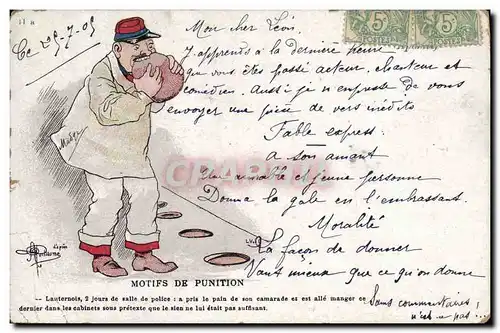 Ce 25-7-05
Mon cher Léon
J'apprends à la dernière heure
que vous êtes passé acteur, chanteur et
comédien. Aussi je m'empresse de vous
envoyer une pièce de vers inédits
Fable express.
A son amant
Une aimable et jeune personne
Donna la gale en l'embrassant.
Moralité
La façon de donner
Vaut mieux que ce qu'on donne
Sans commentaires !
n'est-ce pas ...
5c 5c
CPARAMA
MOTIFS DE PUNITION
— Lauternois, 2 jours de salle de police : a pris le pain de son camarade et est allé manger ce
dernier dans les cabinets sous prétexte que le sien ne lui était pas suffisant.